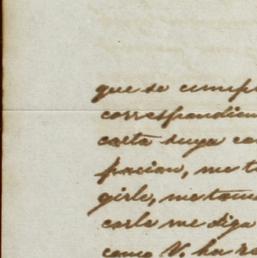 que se cumpl
correspondien
carta suya co
pacion, me t
girle, me tom
carle me diga
como V. ha re